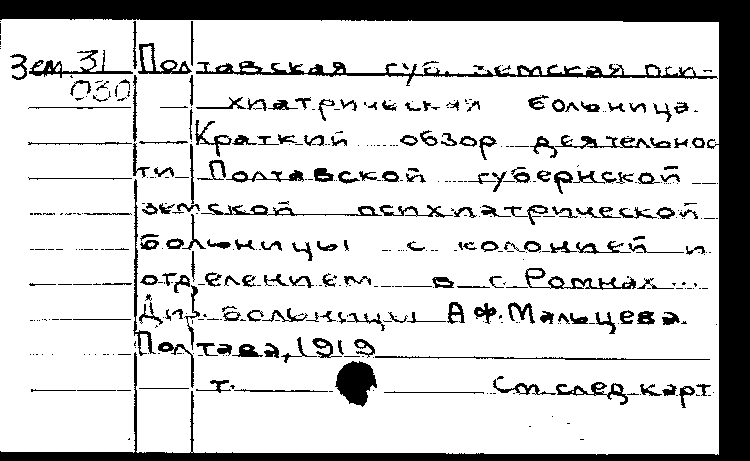 Зем 31 Полтавская губ. земская пси-
030 хиатрическая больница.
Краткий обзор деятельнос
ти Полтавской губернской
земской психиатрической
больницы с колонией и
отделением в г. Ромнах...
Дир. больницы А.Ф. Мальцева.
Полтава, 1919
т. См. след карт